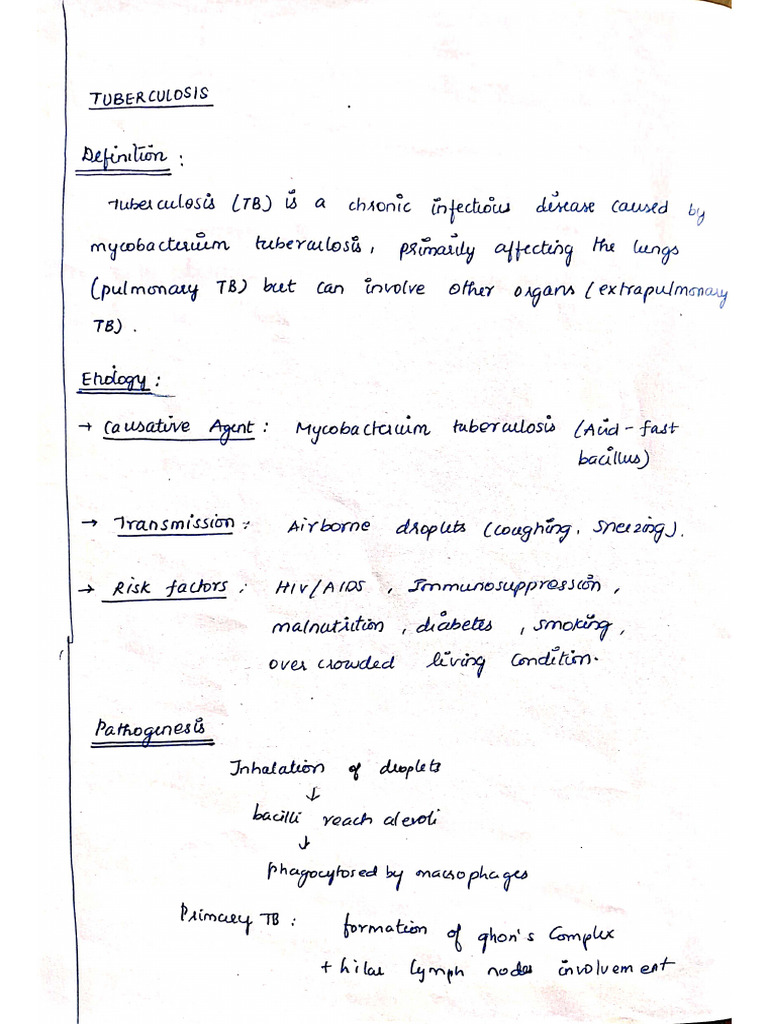 TUBERCULOSIS
Definition :
Tuberculosis (TB) is a chronic infectious disease caused by
mycobacterium tuberculosis, primarily affecting the lungs
(pulmonary TB) but can involve other organs (extrapulmonary
TB).
Etiology :
→ Causative Agent : Mycobacterium tuberculosis (Acid - fast
bacillus)
→ Transmission : Airborne droplets (coughing, sneezing).
→ Risk factors : HIV/AIDS , Immunosuppression ,
malnutrition , diabetes , smoking ,
over crowded living condition.
Pathogenesis
Inhalation of droplets
↓
bacilli reach alevoli
↓
phagocytosed by macrophages
Primary TB : formation of ghon's complex
+ hilar lymph nodes involvement